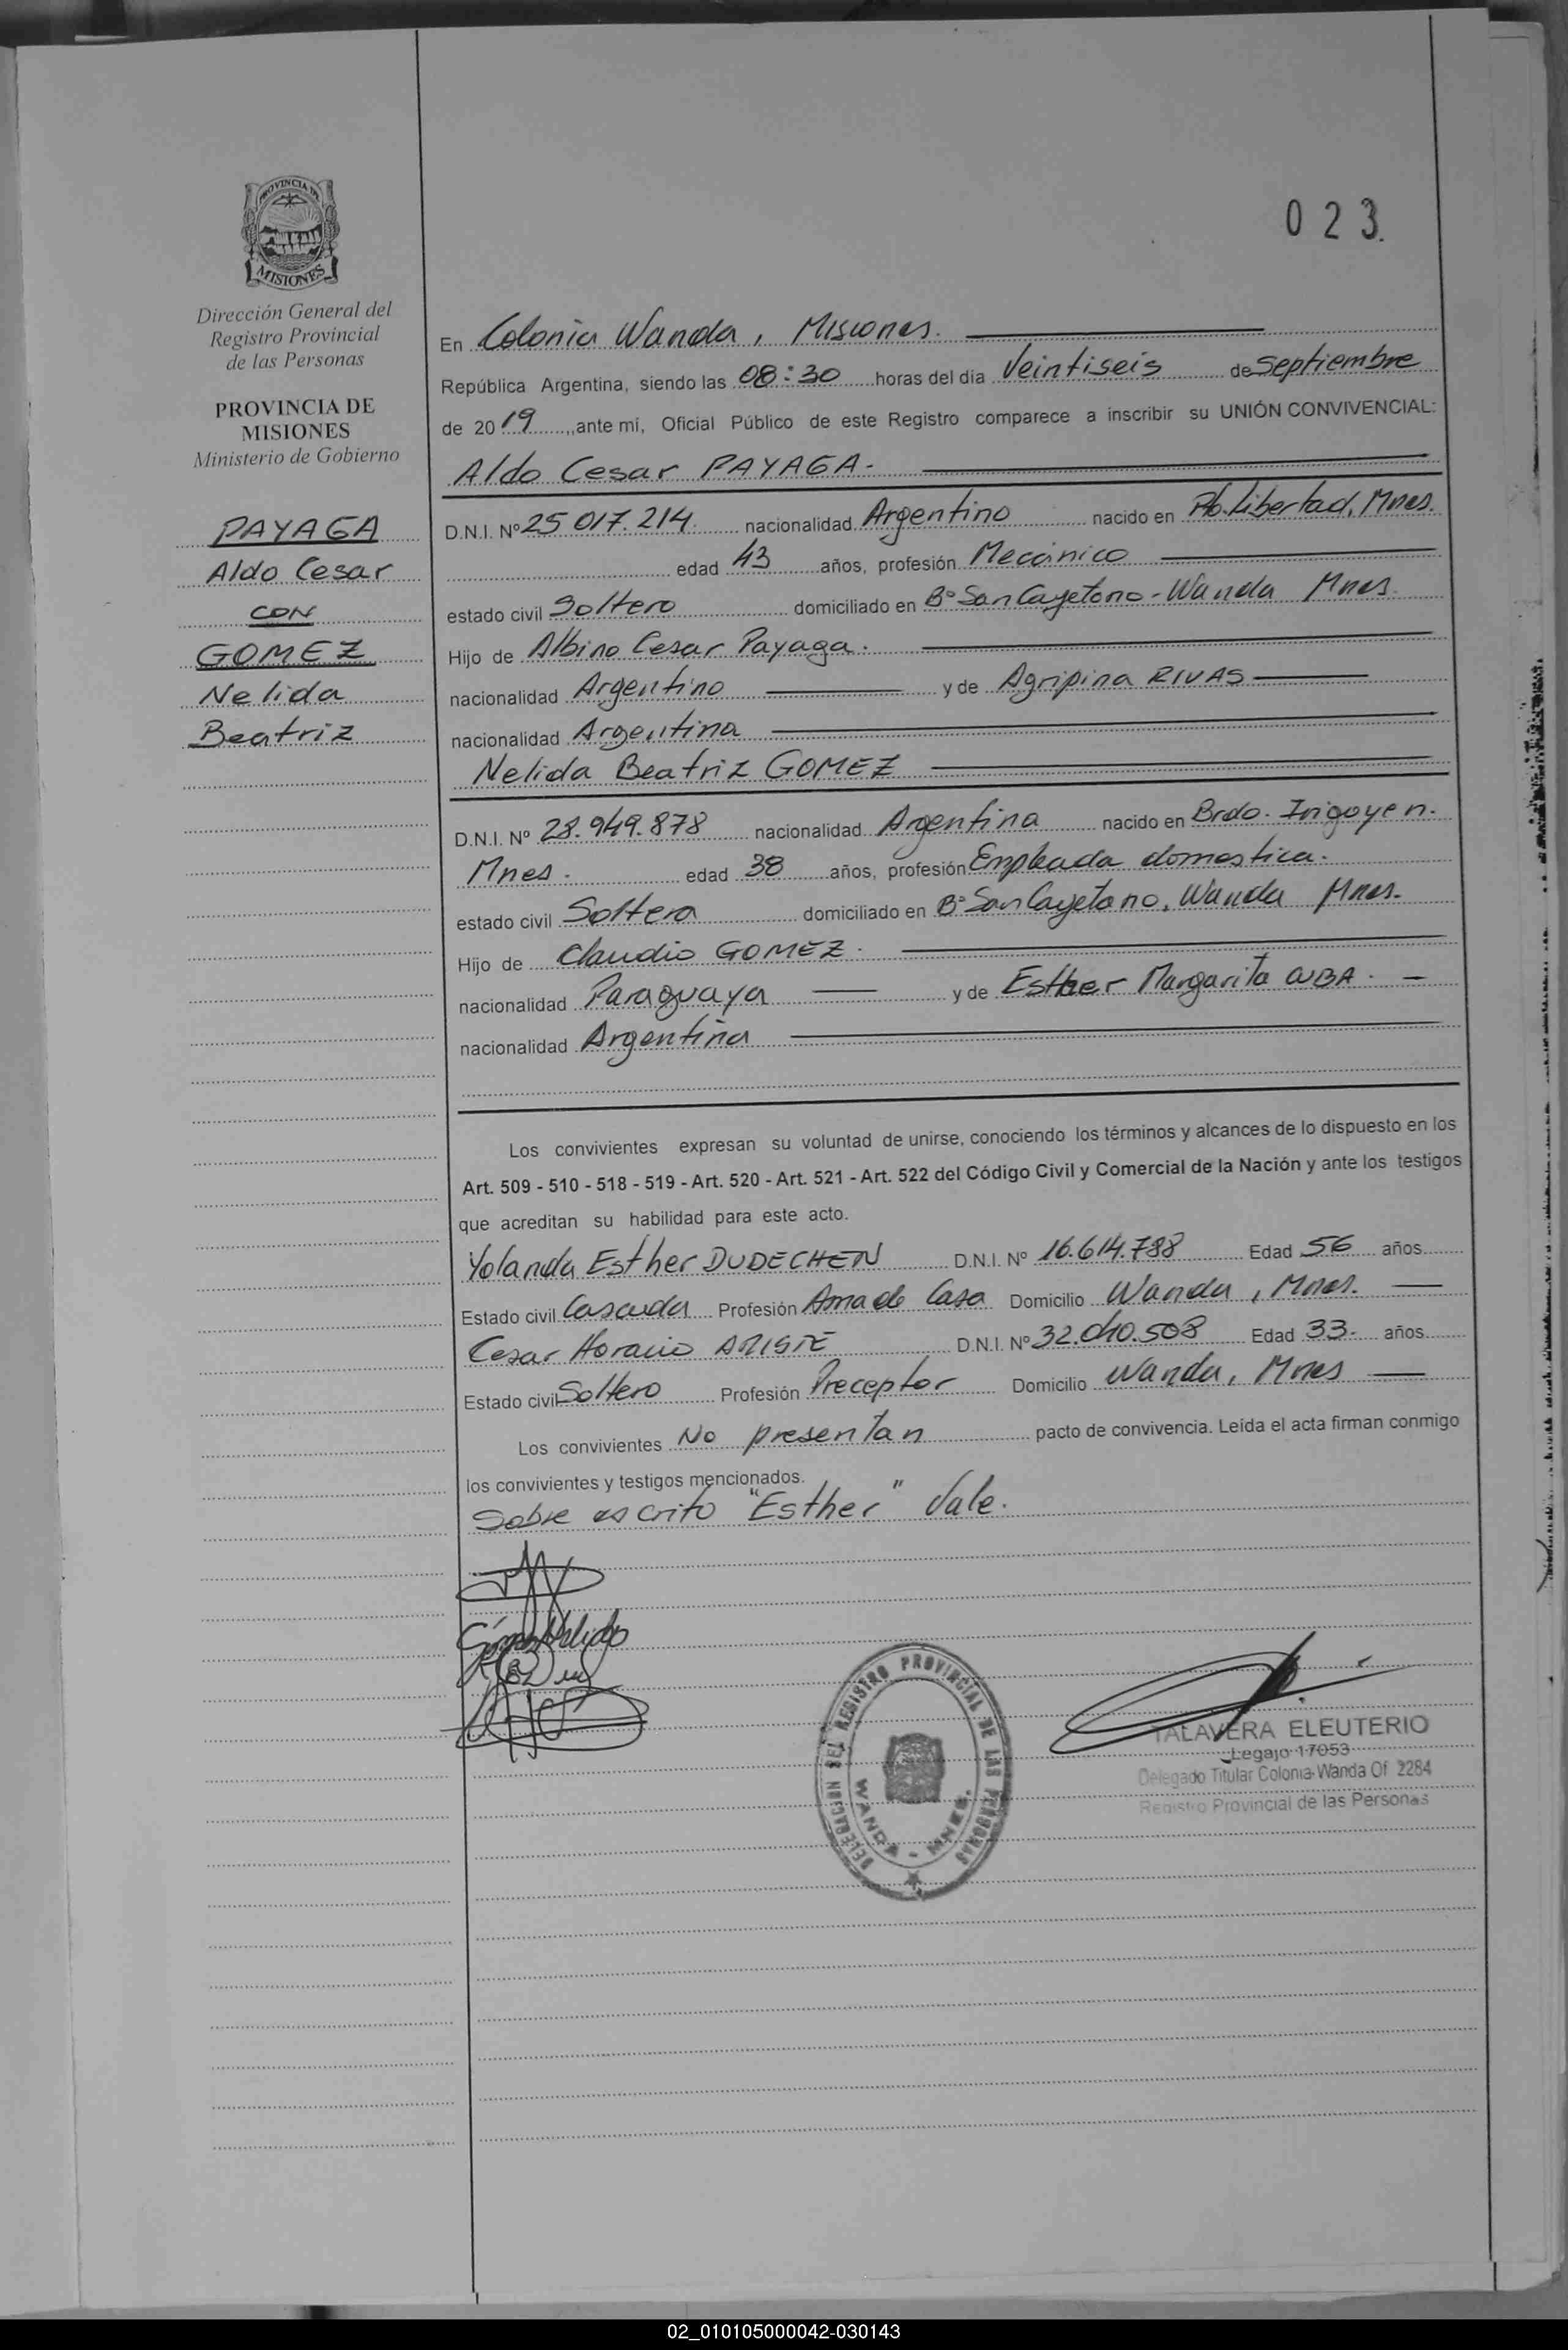 023.
PROVINCIA DE
MISIONES
Dirección General del
Registro Provincial
de las Personas
PROVINCIA DE
MISIONES
Ministerio de Gobierno
PAYAGA
Aldo Cesar
CON
GOMEZ
Nelida
Beatriz
En Colonia Wanda, Misiones.
República Argentina, siendo las 08:30 horas del día Veintiseis de Septiembre
de 2019, ante mí, Oficial Público de este Registro comparece a inscribir su UNIÓN CONVIVENCIAL:
Aldo Cesar PAYAGA.-
D.N.I. Nº 25 017.214. nacionalidad Argentino nacido en Pto. Libertad, Mnes.
edad 43 años, profesión Mecánico
estado civil Soltero domiciliado en Bº San Cayetano - Wanda Mnes.
Hijo de Albino Cesar Payaga.
nacionalidad Argentino y de Agripina RIVAS
nacionalidad Argentina
Nelida Beatriz GOMEZ
D.N.I. Nº 28.949.878 nacionalidad Argentina nacido en Brdo. Irigoyen.
Mnes. edad 38 años, profesión Empleada domestica.
estado civil Soltera domiciliado en Bº San Cayetano, Wanda Mnes.
Hijo de Claudio GOMEZ.
nacionalidad Paraguaya y de Esther Margarita
nacionalidad Argentina
Los convivientes expresan su voluntad de unirse, conociendo los términos y alcances de lo dispuesto en los
Art. 509 - 510 - 518 - 519 - Art. 520 - Art. 521 - Art. 522 del Código Civil y Comercial de la Nación y ante los testigos
que acreditan su habilidad para este acto.
Yolanda Esther DUDECHEN D.N.I. Nº 16.614.788 Edad 56 años
Estado civil Casada Profesión Ama de Casa Domicilio Wanda, Mnes.
Cesar Horacio D.N.I. Nº 32.040.508 Edad 33- años
Estado civil Soltero Profesión Preceptor Domicilio Wanda, Mnes
Los convivientes No presentan pacto de convivencia. Leída el acta firman conmigo
los convivientes y testigos mencionados.
Sobre escrito "Esther" Vale.
DELEGACION DEL REGISTRO PROVINCIAL DE LAS PERSONAS
WANDA - MNES.
TALAVERA ELEUTERIO
Legajo 17053
Delegado Titular Colonia Wanda Of. 2284
Registro Provincial de las Personas
02_010105000042-030143